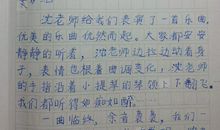 沈老师给我们表演了一首乐曲,
优美的乐曲悠然而起。大家都安安
静静的听着,沈老师边拉边动着身
子,表情也根着曲调变化,沈老师
的手指沿着小提琴的琴领下下翻飞。
我们都听得如痴如醉。
一曲临终,余音袅袅,我们一